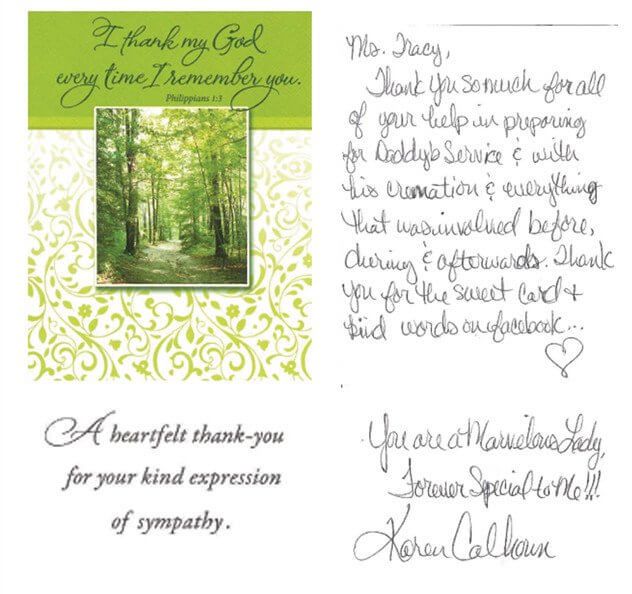 I thank my God
every time I remember you.
Philippians 1:3
A heartfelt thank-you
for your kind expression
of sympathy.
Ms. Tracy,
Thank you so much for all
of your help in preparing
for Daddy's Service & with
his cremation & everything
that was involved before,
during & afterwards. Thank
you for the sweet card &
kind words on facebook...
You are a Marvelous Lady,
Forever Special to Me!!!
Karen Calhoun